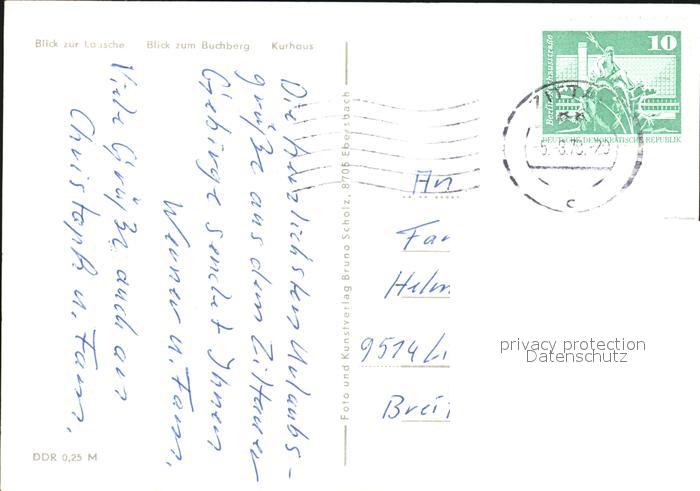 Blick zur Lausche Blick zum Buchberg Kurhaus
Die herzlichsten Urlaubs-
grüße aus dem Zittauer
Gebirge sendet Ihnen
Werner u. Fam.
Viele Grüße auch an
Christoph u. Fam.
DDR 0,25 M
Foto und Kunstverlag Bruno Scholz, 8705 Ebersbach
10
DEUTSCHE DEMOKRATISCHE REPUBLIK
ZITTAU
c
An
Fam
Helm
9514
Brei
privacy protection
Datenschutz